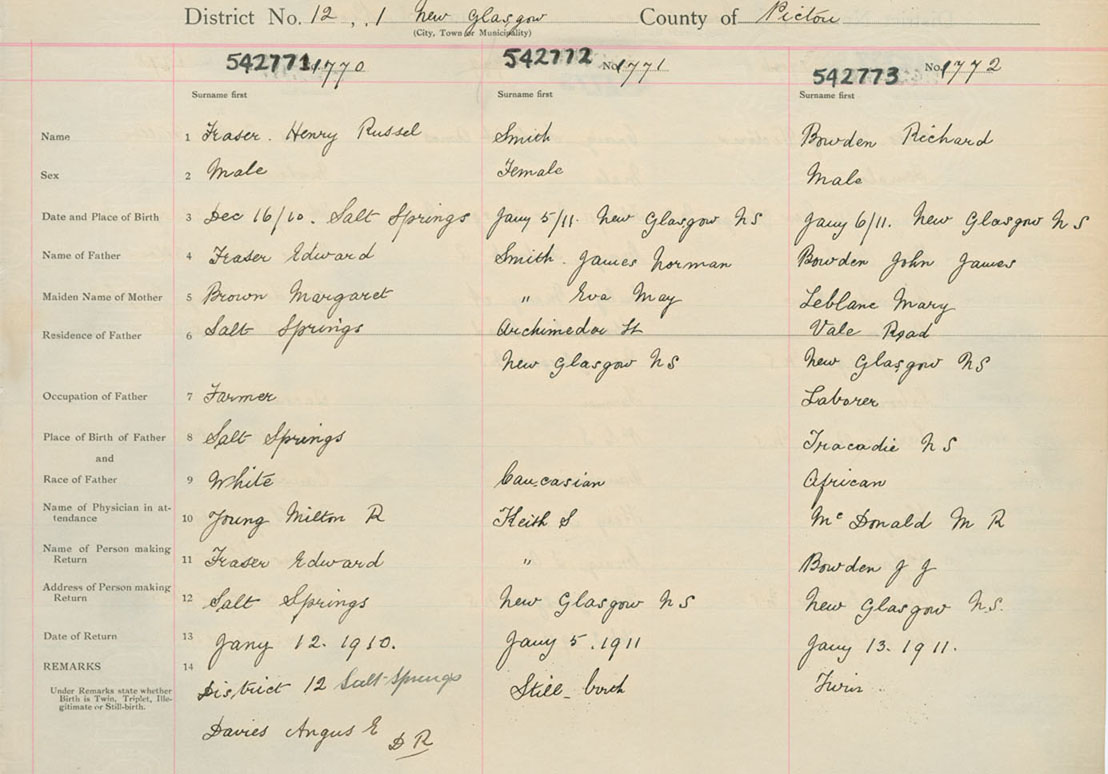 District No. 12, .1 New Glasgow County of Pictou
(City, Town or Municipality)
542771 1770 542772 No. 1771 542773 No. 1772
Surname first Surname first Surname first
Name 1 Fraser. Henry Russel Smith Bowden Richard
Sex 2 Male Female Male
Date and Place of Birth 3 Dec 16/10. Salt Springs Jany 5/11. New Glasgow NS Jany 6/11. New Glasgow NS
Name of Father 4 Fraser Edward Smith. James Norman Bowden John James
Maiden Name of Mother 5 Brown Margaret " Eva May Leblanc Mary
Residence of Father 6 Salt Springs Archimedoe St Vale Road
New Glasgow NS New Glasgow NS
Occupation of Father 7 Farmer Laborer
Place of Birth of Father 8 Salt Springs Tracadie NS
and
Race of Father 9 White Caucasian African
Name of Physician in at-
tendance 10 Young Milton R Keith S McDonald M R
Name of Person making
Return 11 Fraser Edward " Bowden J J
Address of Person making
Return 12 Salt Springs New Glasgow NS New Glasgow N.S.
Date of Return 13 Jany 12. 1910. Jany 5. 1911 Jany 13. 1911.
REMARKS 14 District 12 Salt Springs Still-birth Twin
Under Remarks state whether
Birth is Twin, Triplet, Ille-
gitimate or Still-birth.
Davies Angus E DR